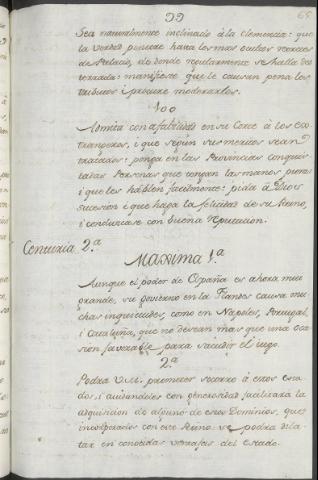 99
65
Sea naturalmente inclinado à la clemencia: que
la verdad penetre hasta los mas ocultos
de Palacio, de donde regularmente se halla des
terrada: manifieste que le causan pena los
tributos i procure moderarlos.
100
Admita con afabilidad en su Corte à los es-
trangeros, i que según sus meritos sean
tratados: ponga en las Provincias conquis-
tadas Personas que tengan las manos puras
i que les hablen facilmente: pida à Dios
sucesion i que haga la felicidad de su Reino,
i conduzcase con buena reputacion.
Centuria 2.ª
Maxima 1.ª
Aunque el poder de España es ahora mui
grande, su govierno en la Flandes causa mu
chas inquietudes, como en Napoles, Portugal,
i Cataluña, que no desean mas que una oca
sion favorable para sacudir el iugo.
2.ª
Podra V.M. prometer socorro à estos esta
dos, i aiudandoles con generosidad facilitará la
adquisicion de alguno de estos Dominios, que
incorporados con este Reino se podra dila-
tar en conocidas ventajas del estado.